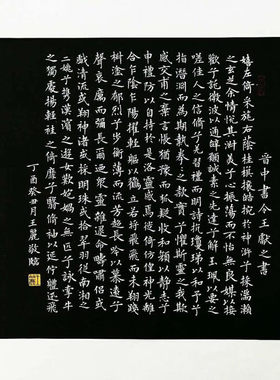 晋中書令王獻之書
嬉左倚采旄右蔭桂旗攘皓捥於神滸兮採湍瀨
之玄芝余情悅其淑美兮心振蕩而不怡無良媒以接
歡兮託微波以通辭願誠素之先達兮解玉珮以要之
嗟佳人之信脩兮羌習禮而明詩抗瓊珶以和予兮
指潛淵而為期執拳拳之款實兮懼斯靈之我欺
感交甫之棄言悵猶豫而狐疑收和顏以靜志兮
申禮防以自持於是洛靈感焉徙倚仿偟神光離
合乍陰乍陽擢輕軀以鶴立若將飛而未翔踐
椒塗之郁烈兮步衡薄而流芳超長吟以慕遠兮
聲哀厲而彌長爾迺衆靈雜遝命疇嘯侶或
戲清流或翔神渚或採明珠或拾翠羽從南湘之
二姚兮攜漢濱之遊女歎炮媧之無匹兮詠牽牛
之獨處揚輕袿之倚靡兮翳脩袖以延佇體迅飛
丁酉癸丑月王麗敬臨